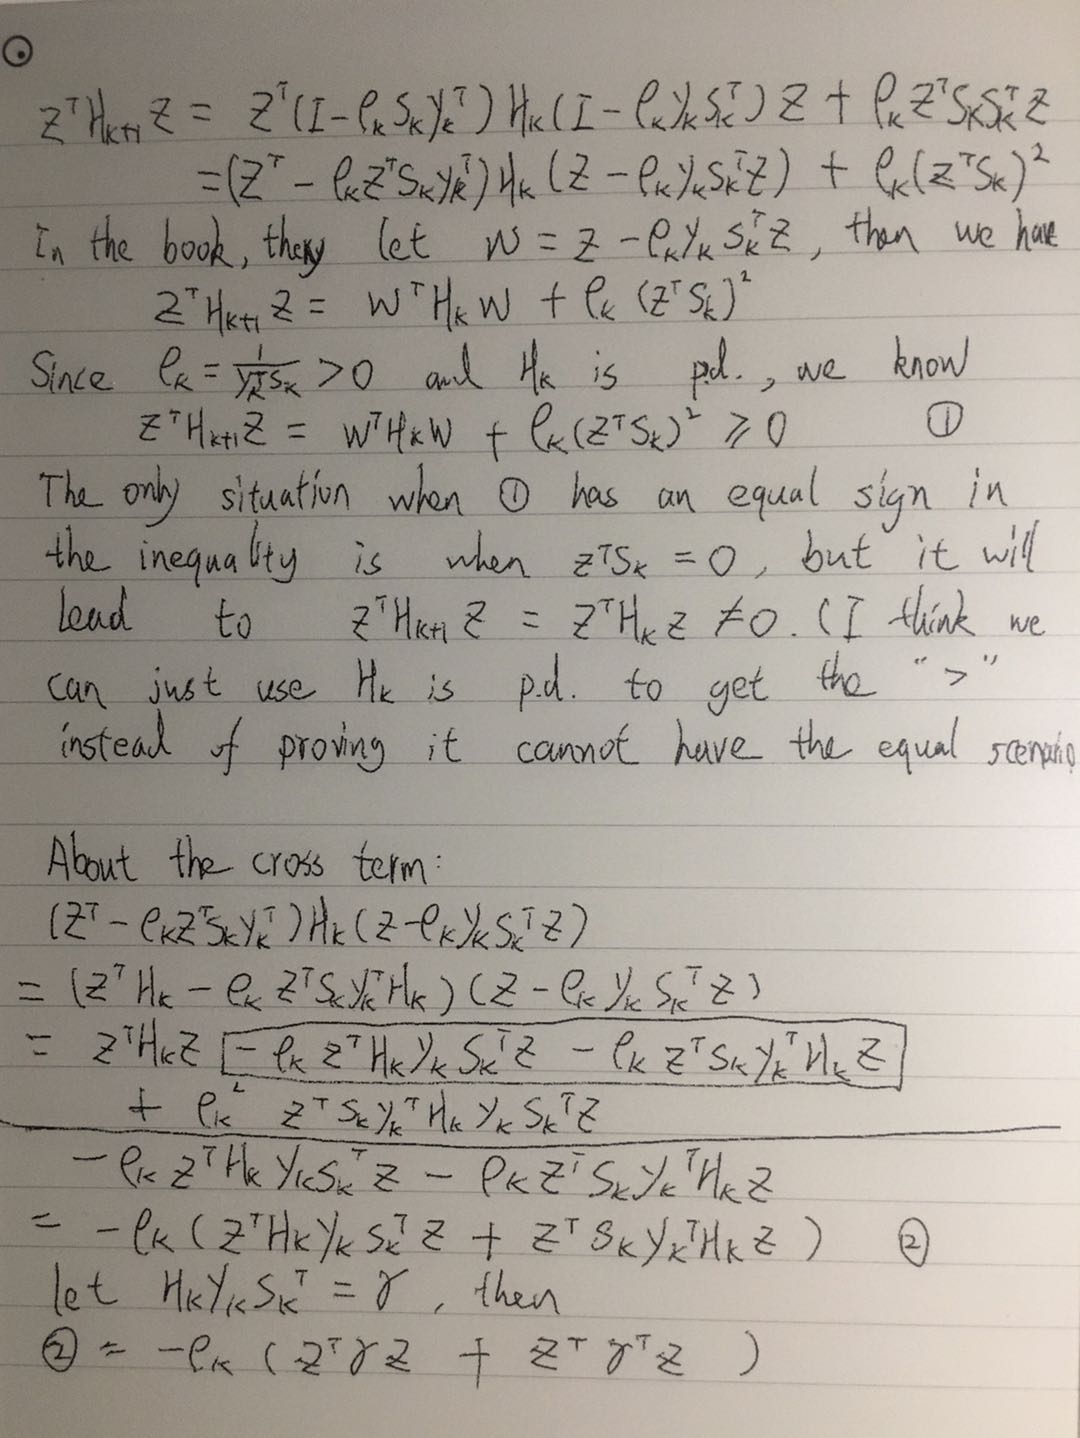 zᵀH_{k+1}z = zᵀ(I-ρ_k s_k y_kᵀ) H_k (I-ρ_k y_k s_kᵀ) z + ρ_k zᵀs_k s_kᵀ z
=(zᵀ - ρ_k zᵀs_k y_kᵀ) H_k (z - ρ_k y_k s_kᵀz) + ρ_k(zᵀs_k)²
In the book, they let w = z - ρ_k y_k s_kᵀz, then we have
zᵀH_{k+1} z = wᵀH_k w + ρ_k (zᵀs_k)²
Since ρ_k = 1/(y_kᵀs_k) > 0 and H_k is p.d., we know
zᵀH_{k+1}z = wᵀH_k w + ρ_k(zᵀs_k)² ⩾ 0 ①
The only situation when ① has an equal sign in
the inequality is when zᵀs_k = 0, but it will
lead to zᵀH_{k+1} z = zᵀH_k z ≠ 0. (I think we
can just use H_k is p.d. to get the ">"
instead of proving it cannot have the equal scenario
About the cross term:
(zᵀ - ρ_k zᵀs_k y_kᵀ) H_k (z - ρ_k y_k s_kᵀ z)
= (zᵀ H_k - ρ_k zᵀs_k y_kᵀH_k) (z - ρ_k y_k s_kᵀ z)
= zᵀH_k z - ρ_k zᵀH_k y_k s_kᵀz - ρ_k zᵀs_k y_kᵀH_k z
+ ρ_k² zᵀs_k y_kᵀH_k y_k s_kᵀz
- ρ_k zᵀH_k y_k s_kᵀ z - ρ_k zᵀs_k y_kᵀH_k z
= - ρ_k (zᵀH_k y_k s_kᵀ z + zᵀ s_k y_kᵀH_k z) ②
let H_k y_k s_kᵀ = γ, then
② = -ρ_k (zᵀγz + zᵀγᵀz)